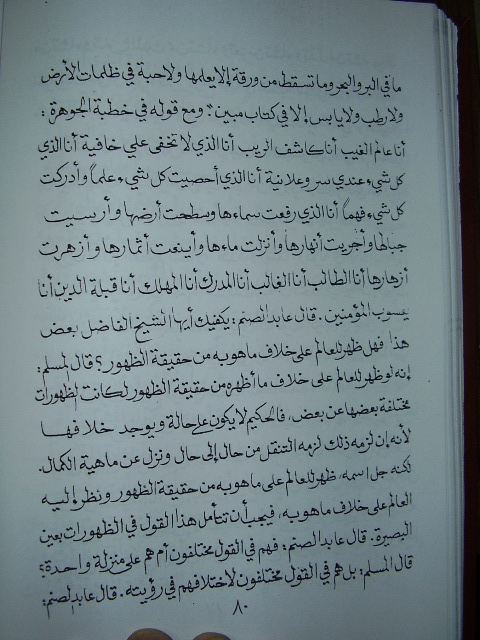 ما في البر والبحر وما تسقط من ورقة إلا يعلمها ولا حبة في ظلمات الأرض
ولا رطب ولا يابس إلا في كتاب مبين؟ ومع قوله في خطبة الجوهرة :
أنا عالم الغيب أنا كاشف الريب أنا الذي لا تخفى علي خافية أنا الذي
كل شيء عندي سر وعلانية أنا الذي أحصيت كل شيء علماً وأدركت
كل شيء فهماً أنا الذي رفعت سماءها وسطحت أرضها وأرسيت
جبالها وأجريت أنهارها وأنزلت ماءها وأينعت أثمارها وأزهرت
أزهارها أنا الطالب أنا الغالب أنا المدرك أنا المهلك أنا قبلة الدين أنا
يعسوب المؤمنين . قال عابد الصنم : يكفيك أيها الشيخ الفاضل بعض
هذا فهل ظهر للعالم على خلاف ما هو به من حقيقة الظهور ؟ قال المسلم :
إنه لو ظهر للعالم على خلاف ما أظهره من حقيقة الظهور لكانت الظهورات
مختلفة بعضها عن بعض ، فالحكيم لا يكون على حالة ويوجد خلافها
لأنه إن لزمه ذلك لزمه التنقل من حال إلى حال ونزل عن ماهية الكمال.
لكنه جل اسمه ، ظهر للعالم على ما هو به من حقيقة الظهور ونظر إليه
العالم على خلاف ما هو به ، فيجب أن تتأمل هذا القول في الظهورات بعين
البصيرة . قال عابد الصنم : فهم في القول مختلفون أم هم على منزلة واحدة ؟
قال المسلم : بل هم في القول مختلفون لاختلافهم في رؤيته . قال عابد الصنم :
٨٠